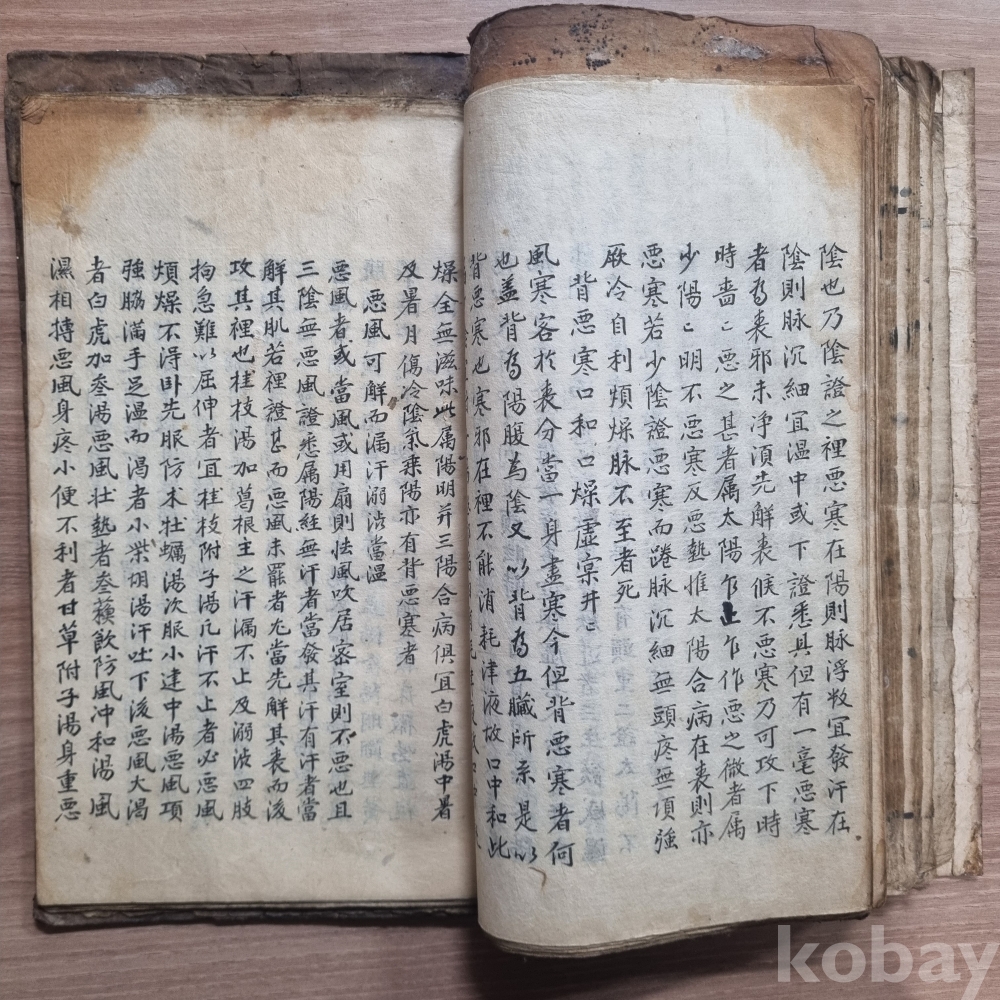 陰也乃陰證之裡惡寒在陽則脉浮数冝發汗在
陰則脉沉細冝温中或下證悉具但有一毫惡寒
者為表邪未净湏先解表候不惡寒乃可攻下時
時嗇〻惡之甚者属太陽乍止乍作惡之微者属
少陽〻明不惡寒反惡熱惟太陽合病在表則亦
惡寒若少陰證惡寒而踡脉沉細無頭疼無項強
厥冷自利煩燥脉不至者死
背惡寒口和口燥虚
風寒客於表分當一身盡寒今但背惡寒者何
也盖背為陽腹為陰又以背為五臟所系是以
背惡寒也寒邪在裡不能消耗津液故口中和此
燥全無滋味此属陽明并三陽合病俱冝白虎湯中暑
及暑月傷冷陰氣乗陽亦有背惡寒者
惡風可解而漏汗溺渋當温
惡風者或當風或用扇則怯風吹居密室則不惡也且
三陰無惡風證悉属陽経無汗者當發其汗有汗者當
解其肌若裡證甚而惡風未罷者尤當先解其表而後
攻其裡也桂枝湯加葛根主之汗漏不止及溺渋四肢
拘急難以屈伸者冝桂枝附子湯凡汗不止者必惡風
煩燥不得卧先服防木牡蠣湯次服小建中湯惡風項
強脇満手足温而渴者小柴胡湯汗吐下後惡風大渴
者白虎加叁湯惡風壮熱者叁蘓飲防風冲和湯風
濕相摶惡風身疼小便不利者甘草附子湯身重惡
kobay